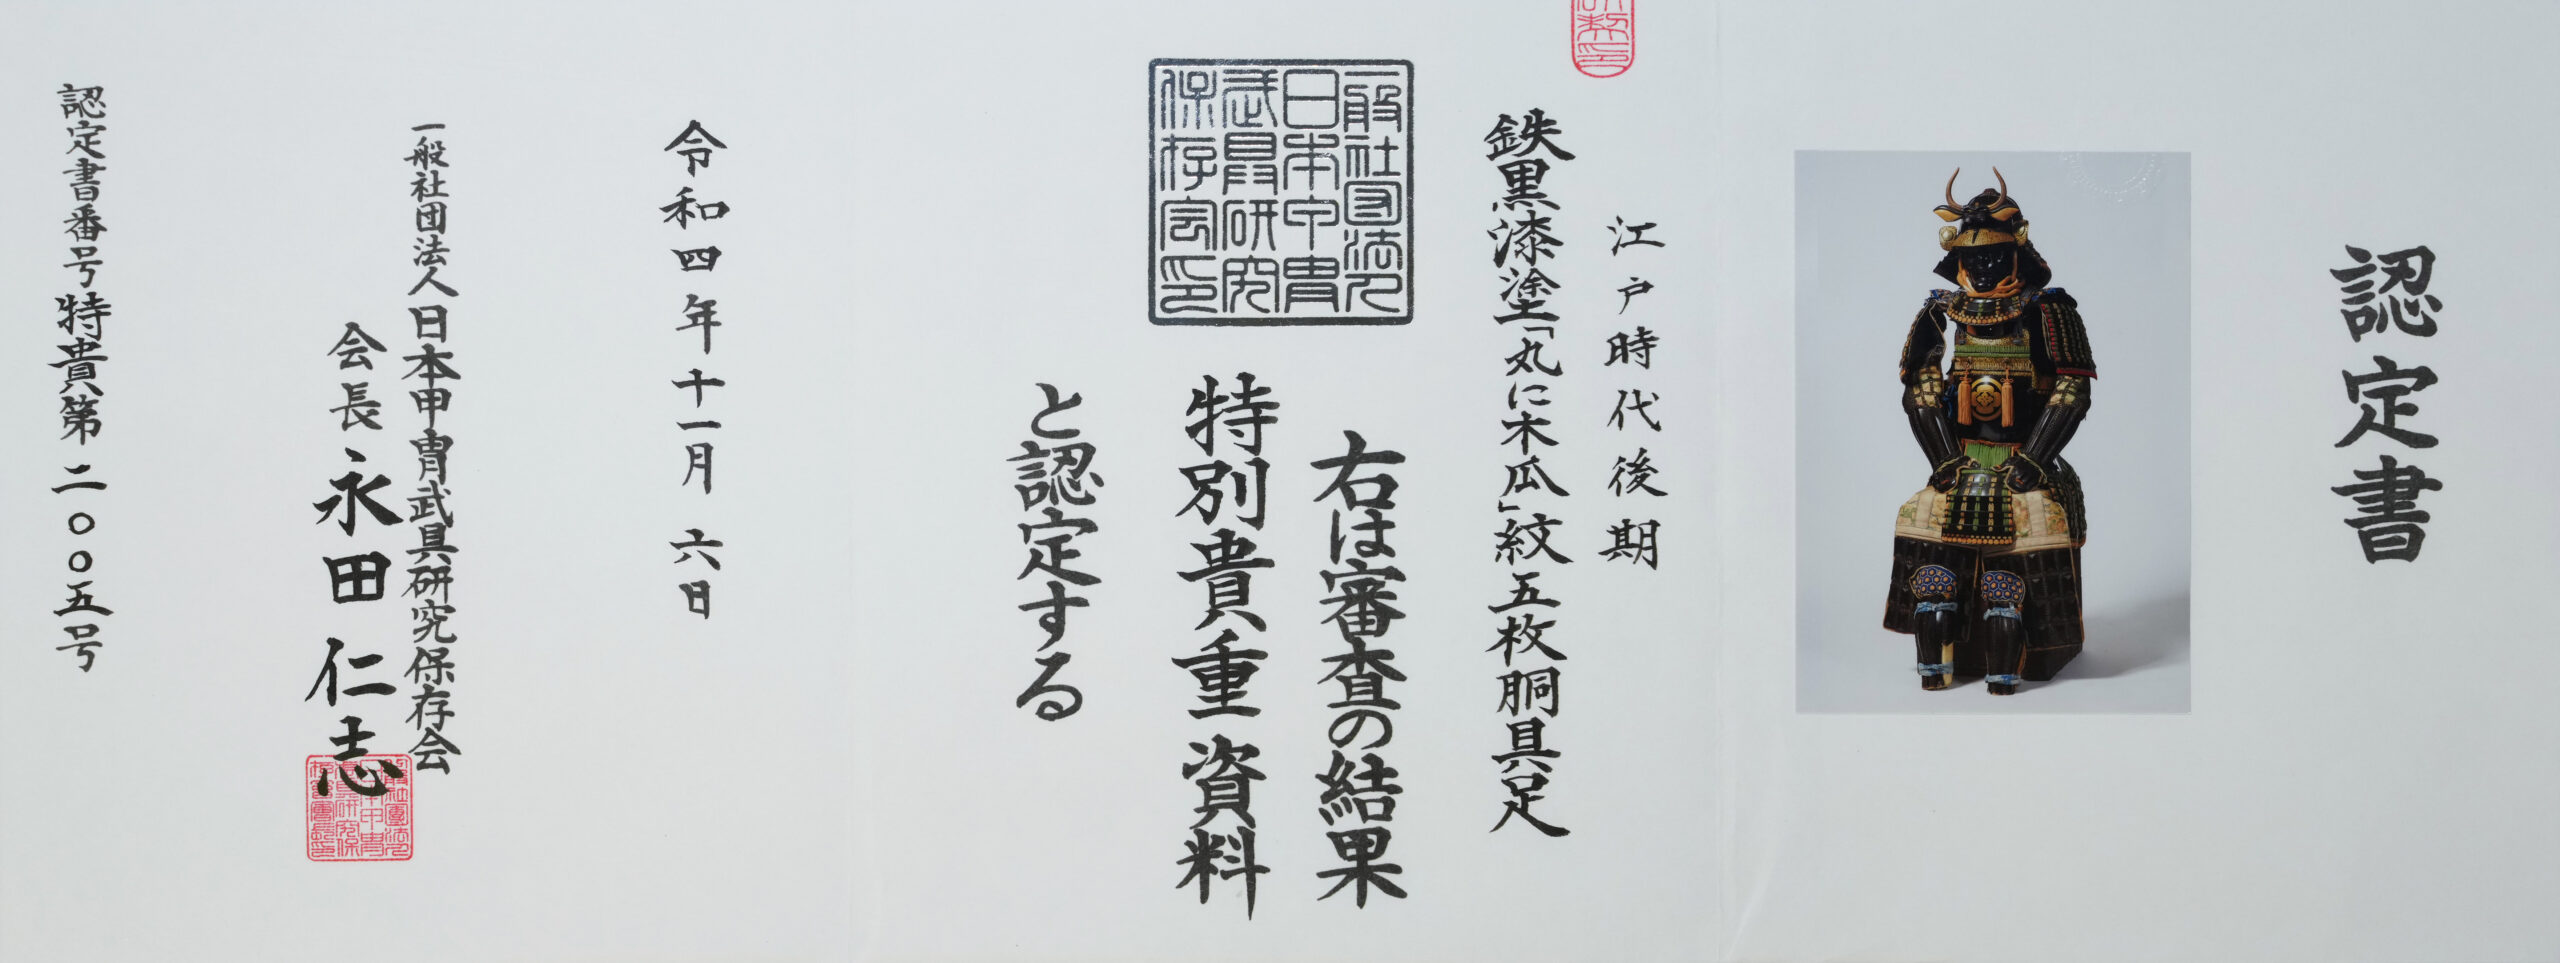 認定書
江戸時代後期
鉄黒漆塗「丸に木瓜」紋五枚胴具足
右は審査の結果
特別貴重資料
と認定する
一般社団法人
日本甲冑
武具研究
保存会印
令和四年十一月六日
一般社団法人日本甲冑武具研究保存会
会長永田仁志
認定書番号特貴第二〇〇五号